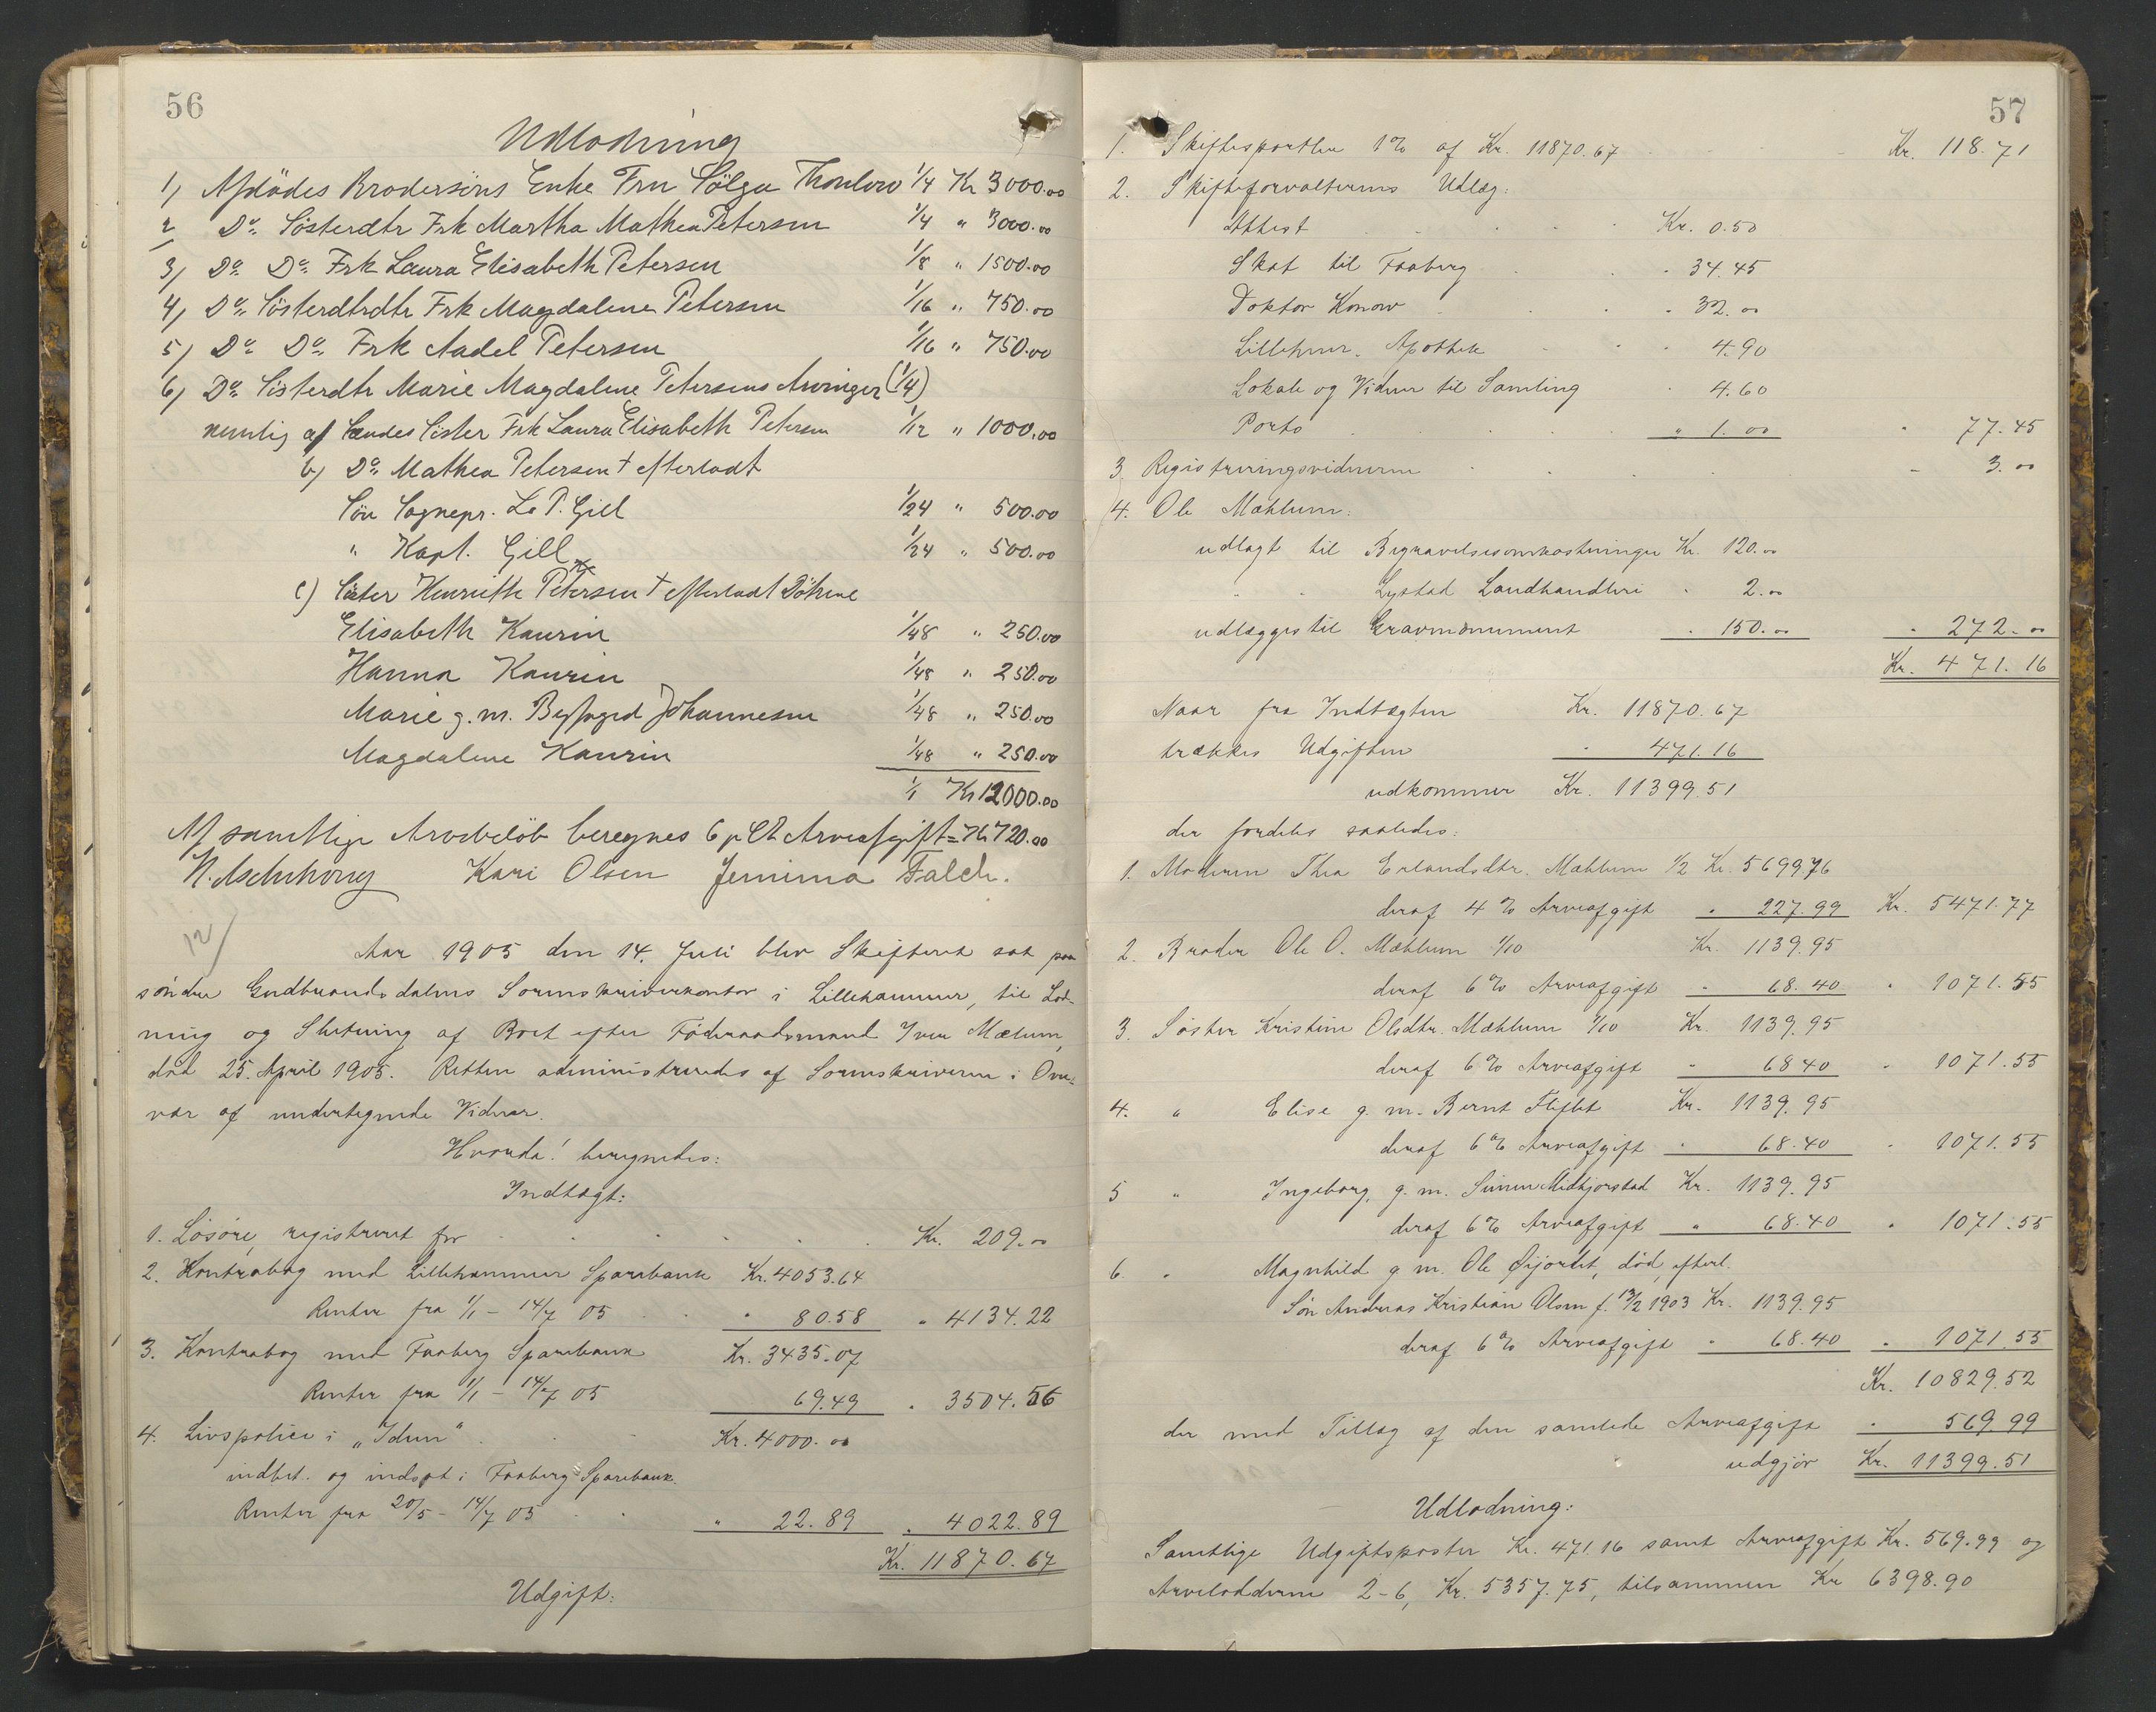 56
Udlodning
1) Afdødes Brodersøns Enke Fru Sølga Thonlow 1/4 Kr 3000.00
2 Do Søsterdtr Frk Martha Mathea Petersen 1/4 " 3000.00
3) Do Do Frk Laura Elisabeth Petersen 1/8 " 1500.00
4) Do Søsterdtrdtr Frk Magdalene Petersen 1/16 " 750.00
5) Do Do Frk Aadel Petersen 1/16 " 750.00
6) Do Søsterdtr Marie Magdalene Petersens Arvinger (1/4)
nemlig a) Søster Frk Laura Elisabeth Petersen 1/12 " 1000.00
b) Do Mathea Petersen † efterladt
Søn Sognepr. L. P. Gill 1/24 " 500.00
" Kapt. Gill 1/24 " 500.00
c) Søster Henriette Petersen † efterladt Døtrene
Elisabeth Kaurin 1/48 " 250.00
Hanna Kaurin 1/48 " 250.00
Marie g. m. Byfoged Johannesen 1/48 " 250.00
Magdalene Kaurin 1/48 " 250.00
1/1 Kr 12000.00
Af samtlige Arvebeløb beregnes 6 pCt Arveafgift = Kr 720.00
N. Aschehoug Kari Olsen Jemima Falch.
12/
Aar 1905 den 14. Juli blev Skifteret sat paa
søndre Gudbrandsdalens Sorenskriverkontor i Lillehammer, til Lod-
ning og Slutning af Boet efter Føderaadsmand Iver Mælum,
død 25. April 1905. Retten administreredes af Sorenskriveren i Over-
vær af undertegnede Vidner.
Hvorda! beregnedes:
Indtægt:
1. Løsøre, registreret for Kr. 209.00
2. Kontrabog med Lillehammer Sparebank Kr. 4053.64
Renter fra 1/1 - 14/7 05 " 80.58 " 4134.22
3. Kontrabog med Faaberg Sparebank Kr. 3435.07
Renter fra 1/1 - 14/7 05 69.49 " 3504.56
4. Livspolice i "Idun" Kr. 4000.00
indbet. og indsat i Faaberg Sparebank.
Renter fra 20/5 - 14/7 05 " 22.89 " 4022.89
Kr. 11870.67
Udgift:
57
1. Skifteportlen 1% af Kr. 11870.67 Kr. 118.71
2. Skifteforvalterens Udlæg:
Attest Kr. 0.50
Skat til Faaberg " 34.45
Doktor Konow " 32.00
Lillehmr. Apothek " 4.90
Lokale og Vidner til Samling " 4.60
Porto " 1.00 " 77.45
3 Registreringsvidnerne " 3.00
4. Ole Mæhlum:
udlagt til Begravelsesomkostninger Kr. 120.00
" " Lystad Landhandleri " 2.00
udlægges til Gravmonument " 150.00 " 272.00
Kr. 471.16
Naar fra Indtægten Kr. 11870.67
trækkes Udgiften " 471.16
udkommer Kr. 11399.51
der fordeles saaledes:
1. Moderen Thea Erlandsdtr. Mæhlum 1/2 Kr. 5699.76
deraf 4% Arveafgift " 227.99 Kr. 5471.77
2. Broder Ole O. Mæhlum 1/10 Kr. 1139.95
deraf 6% Arveafgift " 68.40 " 1071.55
3. Søster Kristine Olsdtr. Mæhlum 1/10 Kr. 1139.95
deraf 6% Arveafgift " 68.40 " 1071.55
4. " Elise g. m. Bernt Fliflet Kr. 1139.95
deraf 6% Arveafgift " 68.40 " 1071.55
5 " Ingeborg, g. m. Simen Midtkjorstad Kr. 1139.95
deraf 6% Arveafgift " 68.40 " 1071.55
6. " Magnhild g m. Ole Øijordet, død, efterl.
Søn Andreas Kristian Olsen f. 13/2 1903 Kr. 1139.95
deraf 6% Arveafgift " 68.40 " 1071.55
Kr. 10829.52
der med Tillæg af den samlede Arveafgift " 569.99
udgjør Kr. 11399.51
Udlodning:
Samtlige Udgiftsposter Kr. 471.16 samt Arveafgift Kr. 569.99 og
Arvelodderne 2-6, Kr. 5357.75, tilsammen Kr 6398.90